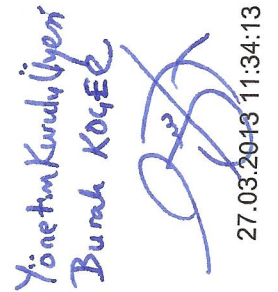 Yönetim Kurulu Üyesi
Burak KOÇER
27.03.2013 11:34:13